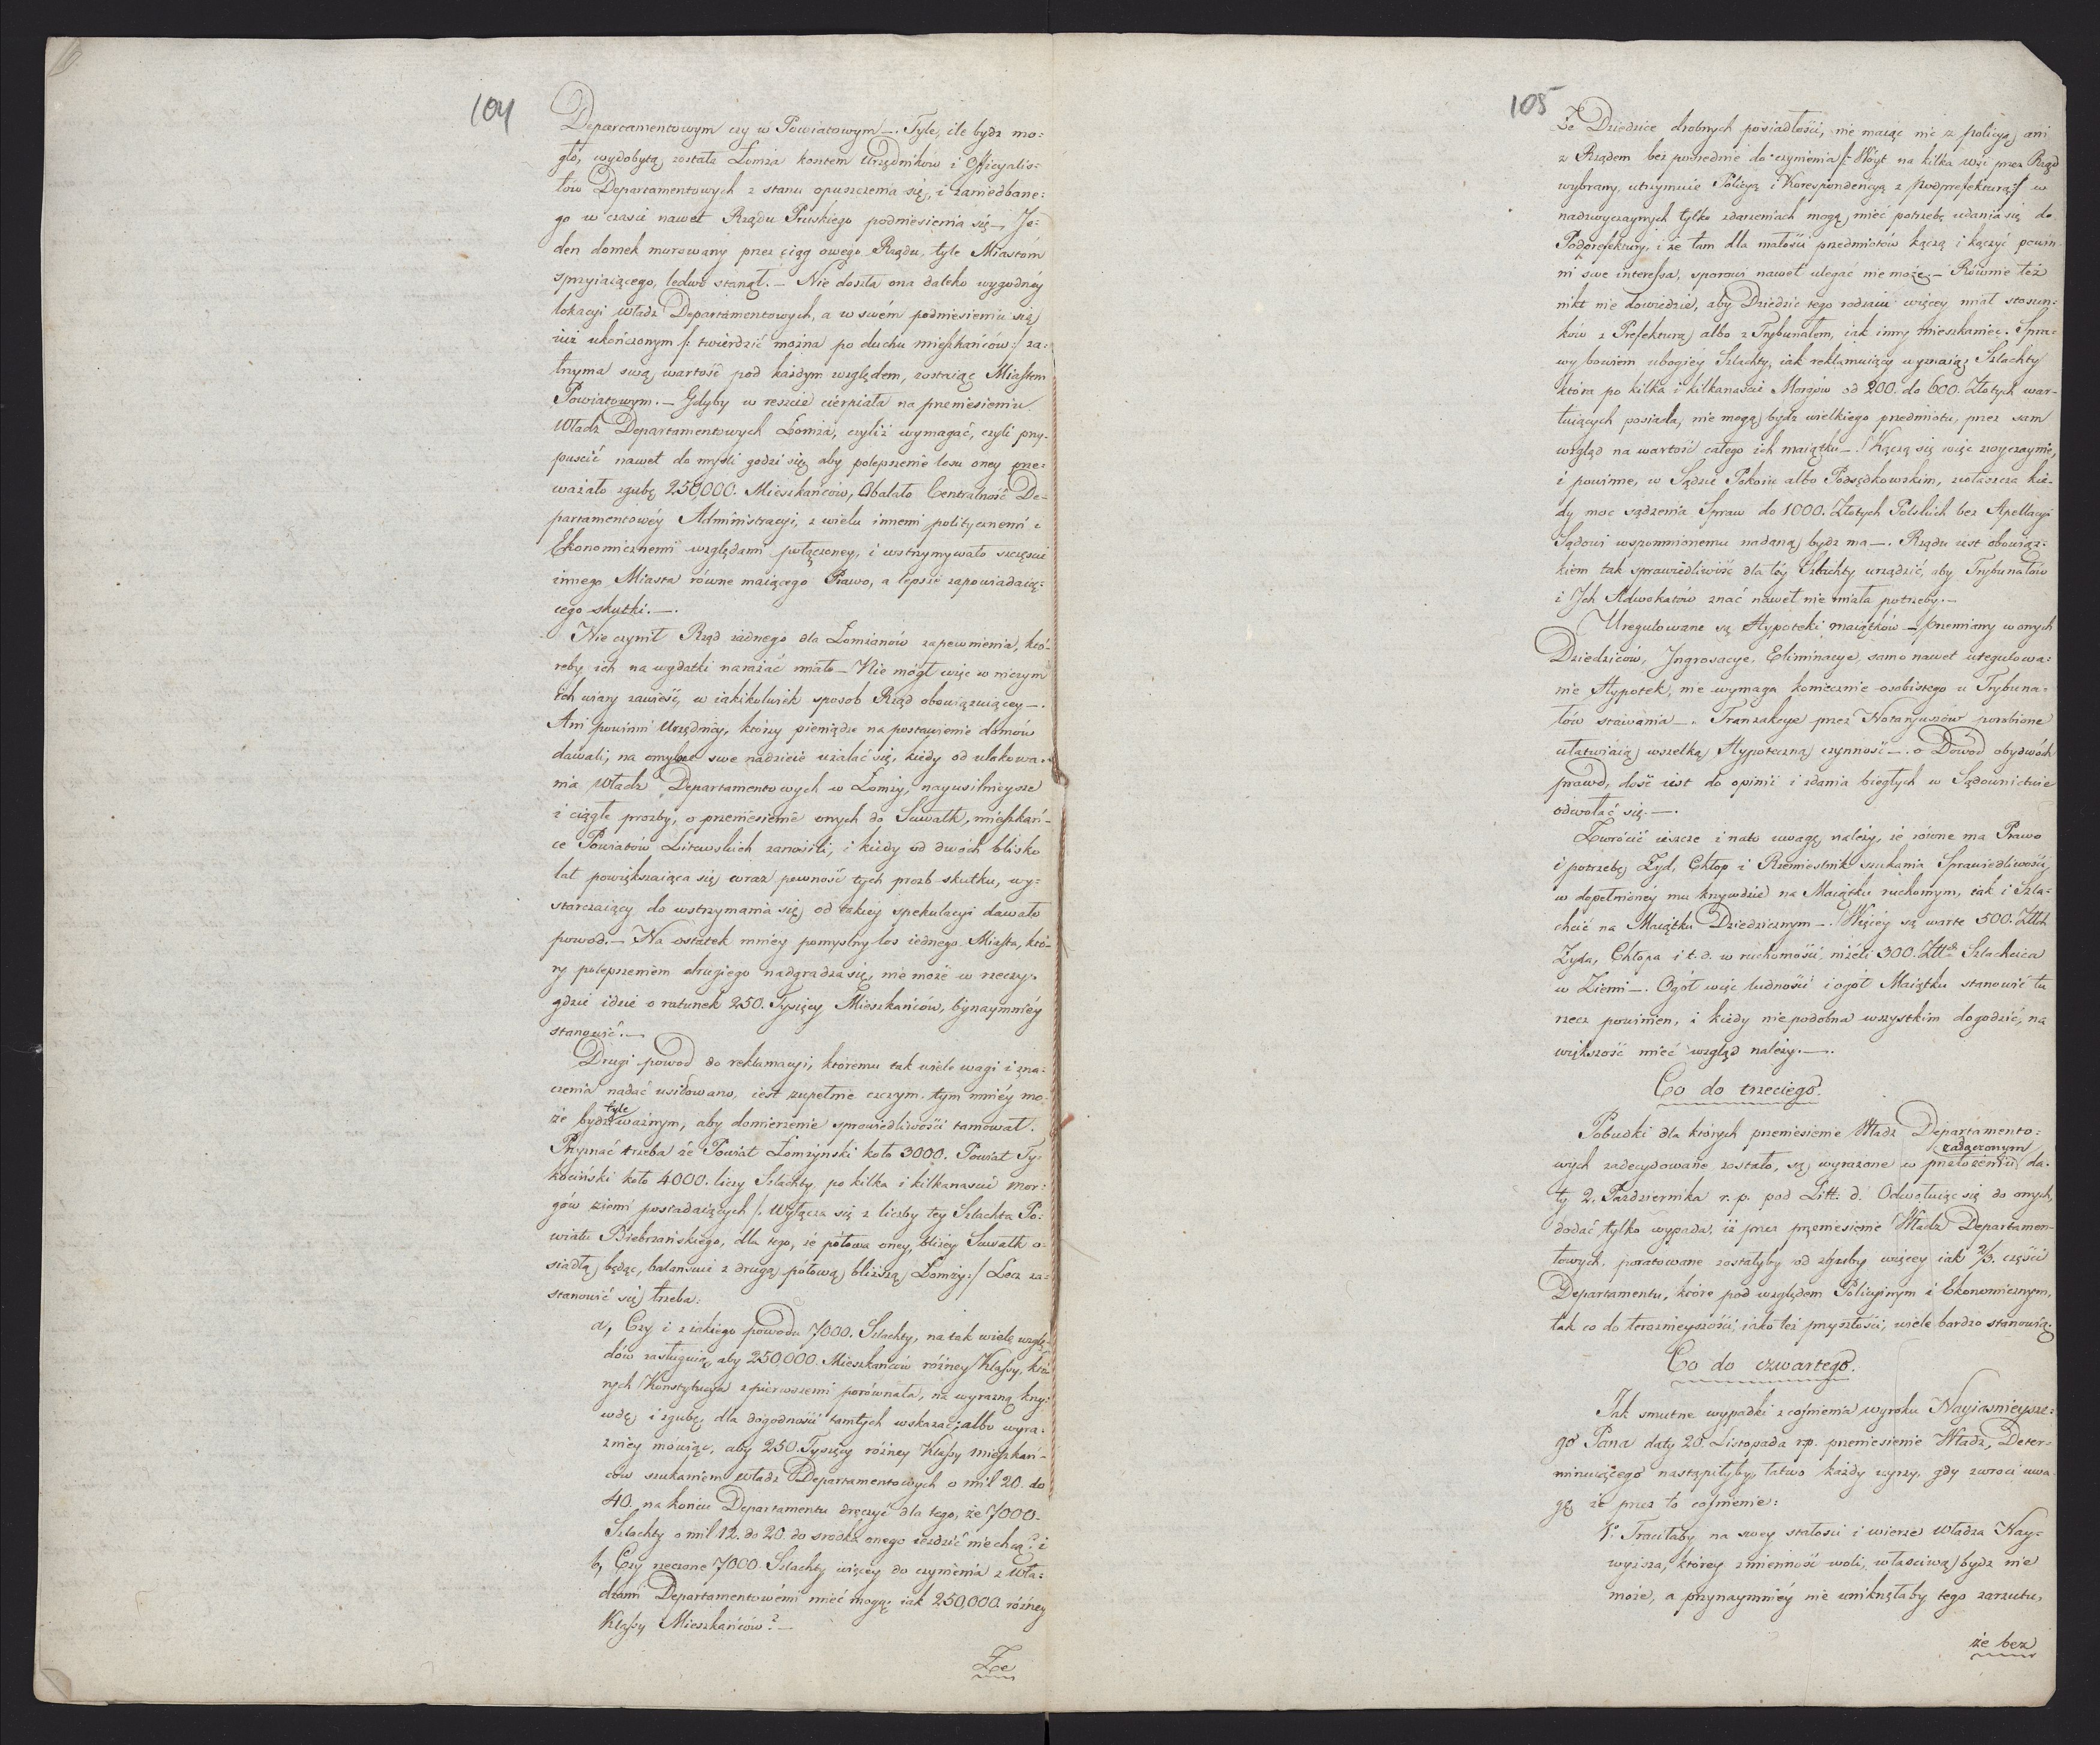 104
Departamentowym czy w Powiatowym —. Tyle, ile bydź mo=
gło, wydobytą została Łomża kosztem Urzędników i Officyalis=
tów Departamentowych z stanu opuszczenia się, i zaniedbane=
go w czasie nawet Rządu Pruskiego podniesienia się —, Je=
den domek murowany przez ciąg owego Rządu, tyle Miastom
sprzyiaiącego, ledwo stanął. — Nie doszła ona daleko wygodnéy
lokacyi Władz Departamentowych, a w swém podniesieniu się
iuż ukończonym /: twierdzić można po duchu mieszkańców :/ za=
trzyma swą wartość pod każdym względem, zostaiąc Miastem
Powiatowym. — Gdyby w reszcie cierpiała na przeniesieniu
Władz Departamentowych Łomża, czyliż wymagać, czyli przy=
puścić nawet do myśli godzi się, aby polepszenie losu oney prze=
ważało zgubę 250,000. Mieszkańców, Obalało Centralność De=
partamentowéy Administracyi, z wielu innemi politycznemi i
Ekonomicznemi względami połączoney, i wstrzymywało szczęście
innego Miasta równe maiącego Prawo, a lepsze zapowiadaią=
cego skutki. —.
Nie czynił Rząd żadnego dla Łomżanów zapewnienia, któ=
reby ich na wydatki narażać miało — Nie mógł więc w niczym
ich wiary zawieść, w iakikolwiek sposob Rząd obowiązuiącey —.
Ani powinni Urzędnicy, którzy pieniądze na postawienie domów
dawali, na omylne swe nadzieie użalać się, kiedy od ulokowa=
nia Władz Departamentowych w Łomży, nayusilnieysze
i ciągłe prozby, o przeniesienie onych do Suwałk, mieszkań=
ce Powiatów Litewskich zanosili, i kiedy od dwóch blisko
lat powiększaiąca się coraz pewność tych prozb skutku, wy=
starczaiący do wstrzymania się od takiey spekulacyi dawało
powod. — Na ostatek mniey pomyślny los iednego Miasta, któ=
ry polepszeniem drugiego nadgradza się, nie może w rzeczy,
gdzie idzie o ratunek 250. Tysięcy Mieszkańców, bynaymniéy
stanowić. —
Drugi powod do reklamacyi, któremu tak wiele wagi i zna=
czenia nadać usiłowano, iest zupełnie czczym. tym mniéy mo=
że bydź tyle ważnym, aby domierzenie sprawiedliwości tamował.
Przyznać trzeba że Powiat Łomżyński koło 3000. Powiat Ty=
kociński koło 4000. liczy Szlachty po kilka i kilkanaście mor=
gów ziemi posiadaiących /: Wyłącza się z liczby tey Szlachta Po=
wiatu Biebrzańskiego, dla tego, że połowa oney, bliżey Suwałk o=
siadłą będąc, balansuie z drugą połową bliższą Łomży :/ Lecz za=
stanowić się trzeba:
a, Czy i z iakiego powodu 7000. Szlachty, na tak wiele wzglę=
dów zasługuią, aby 250,000. Mieszkańców różney Klassy, któ=
rych Konstytucya z pierwszemi porównała, na wyrazną krzy=
wdę i zgubę, dla dogodności tamtych wskazać; albo wyra=
zniey mówiąc, aby 250. Tysięcy różney Klassy mieszkań=
ców szukaniem władz Departamentowych o mil 20. do
40. na końcu Departamentu dręczyć dla tego, że 7000.
Szlachty o mil 12. do 20. do srodka onego iezdzić nie chcą? i
b, Czy rzeczone 7000. Szlachty więcey do czynienia z Wła=
dzami Departamentowémi mieć mogą, iak 250,000. różney
Klassy Mieszkańców? —
Że
105
Że Dziedzice drobnych posiadłości, nie maiąc nic z policyą, ani
z Rządem bezpośrednie do czynienia /: Wóyt na kilka wsi przez Rząd
wybrany, utrzymuie Policyą i Korespondencyą z Podprefekturą :/ w
nadzwyczaynych tylko zdarzeniach mogą mieć potrzebę udania się do
Podprefektury, i że tam dla małości przedmiotów kączą i kączyć powin=
ni swe interessa, sporowi nawet ulegać nie może. — Równie też
nikt nie dowiedzie, aby Dziedzic tego rodzaiu więcey miał stosun=
kow z Prefekturą albo z Trybunałem, iak inny mieszkaniec. Spra=
wy bowiem ubogiey Szlachty, iak reklamuiący wyznaią, Szlachty
która po kilka i kilkanaście Morgów od 200. do 600. Złotych war=
tuiących posiada, nie mogą bydź wielkiego przedmiotu, przez sam
wzgląd na wartość całego ich maiątku —. Kączą się więc zwyczaynie,
i powinne, w Sądzie Pokoiu albo Podsędkowskim, zwłaszcza kie=
dy moc sądzenia Spraw do 1000. Złotych Polskich bez Apellacyi
Sądowi wspomnionemu nadaną bydź ma —. Rządu iest obowiąz=
kiem tak sprawiedliwość dla téy Szlachty urządzić, aby Trybunałów
i Jch Adwokatów znać nawet nie miała potrzeby. —
Uregulowane są Hypoteki maiątków — Przemiany w onych
Dziedziców, Jngrosacye, Eliminacye, samo nawet uregulowa=
nie Hypotek, nie wymaga koniecznie osobistego u Trybuna=
łów stawania —. Tranzakcye przez Notaryuszów porobione
ułatwiaią wszelką Hypoteczną czynność —. o Dowod obydwóch
prawd, dość iest do opinii i zdania biegłych w Sądownictwie
odwołać się. —.
Zwrócić ieszcze i nato uwagę należy, że równe ma Prawo
i potrzebę Żyd, Chłop i Rzemieślnik szukania Sprawiedliwości
w dopełnionéy mu krzywdzie na Maiątku ruchomym, iak i Szla=
chcic na Maiątku Dziedzicznym —. Więcéy są warte 500. Złłch
Żyda, Chłopa i t. d. w ruchomości, niżeli 300. Złłch Szlachcica
w Ziemi —. Ogół więc ludności i ogół Maiątku stanowić tu
rzecz powinien, i kiedy niepodobna wszystkim dogodzić, na
większość mieć wzgląd należy. —.
Co do trzeciego.
Pobudki dla których przeniesienie Władz Departamento=
wych zadecydowane zostało, są wyrażone w załączonym przełożeniu da=
ty 2. Pazdziernika r. p. pod Litt. d. Odwołuiąc się do onych,
dodać tylko wypada, iż przez przeniesienie Władz Departamen=
towych, poratowane zostałyby od zguby więcey iak 2/3. części
Departamentu, które pod względem Policyinym i Ekonomicznym,
tak co do teraznieyszości, iako też przyszłości, wiele bardzo stanowią.
Co do czwartego.
Jak smutne wypadki z cofnienia wyroku Nayiasnieysze=
go Pana daty 20. Listopada r. p. przeniesienie Władz, Deter=
minuiącego nastąpiłyby, łatwo każdy uyrzy, gdy zwroci uwa=
gę że przez to cofnienie:
1.° Traciłaby na swey stałości i wierze Władza Nay=
wyższa, którey zmienność woli, właściwą bydź nie
może, a przynaymniéy nie uniknęłaby tego zarzutu,
że bez